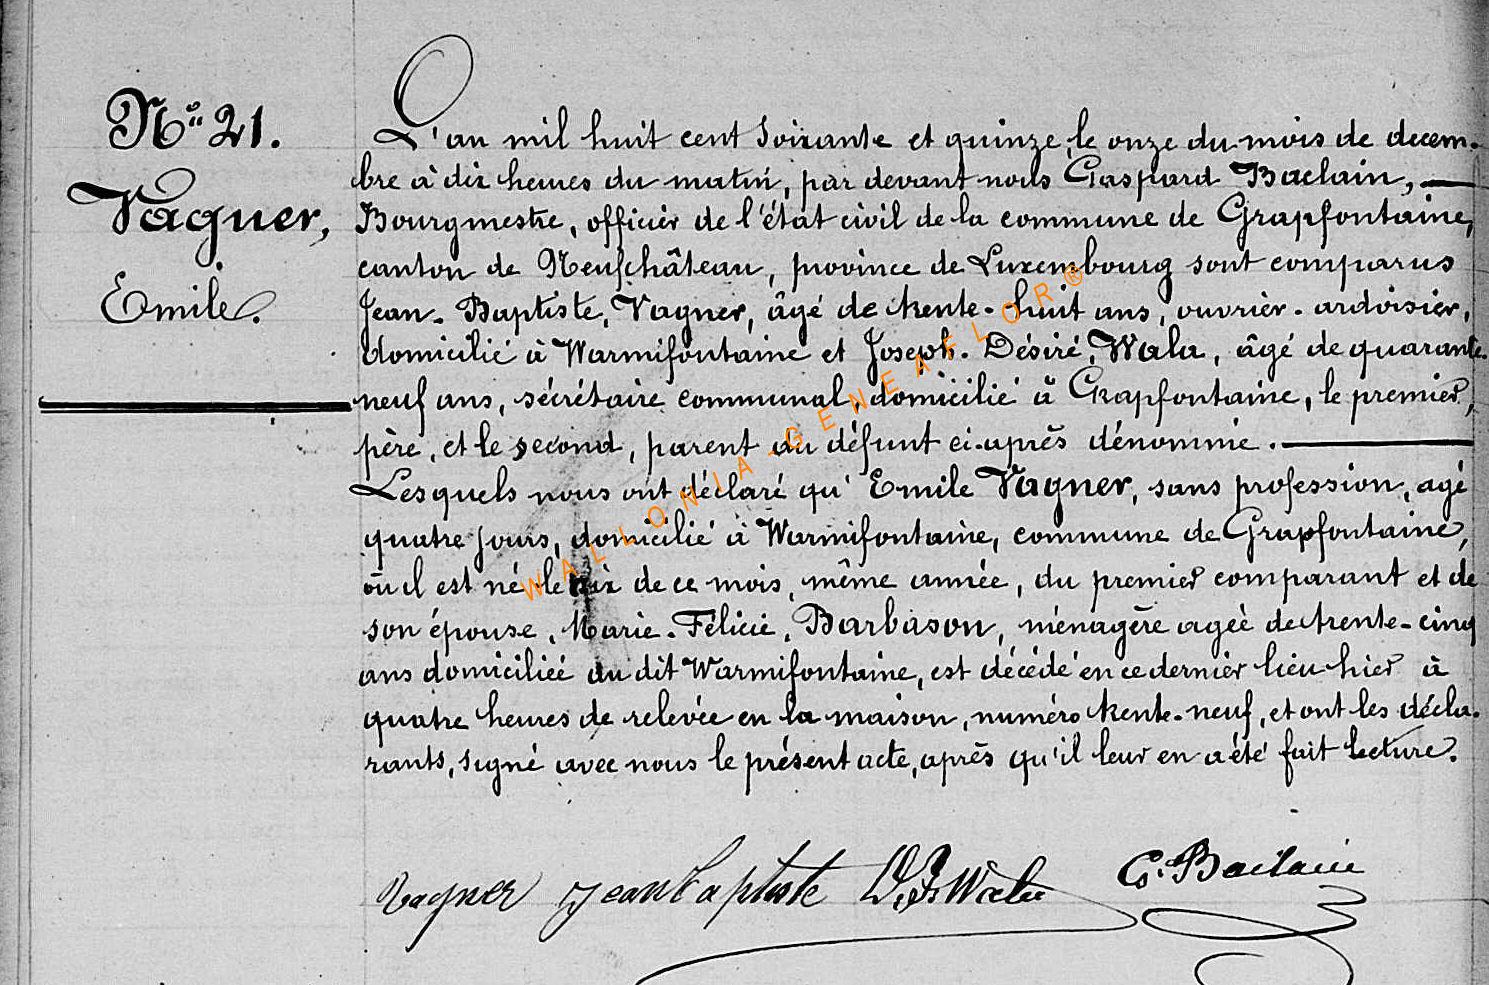 Nº 21.
Vagner,
Emile.
L'an mil huit cent soixante et quinze, le onze du mois de decem-
bre à dix heures du matin, par devant nous Gaspard Baclain,
Bourgmestre, officier de l'état civil de la commune de Grapfontaine,
canton de Neufchâteau, province de Luxembourg sont comparus
Jean-Baptiste, Vagner, âgé de trente-huit ans, ouvrier-ardoisier,
domicilié à Warmifontaine et Joseph-Désiré, Wala, âgé de quarante-
neuf ans, sécrétaire communal, domicilié à Grapfontaine, le premier,
père, et le second, parent du défunt ci-après dénommé.
Lesquels nous ont déclaré qu' Emile Vagner, sans profession, agé
quatre jours, domicilié à Warmifontaine, commune de Grapfontaine,
où il est né le de ce mois, même année, du premier comparant et de
son épouse, Marie-Félicie, Barbason, ménagère agée de trente-cinq
ans domiciliée au dit Warmifontaine, est décédé en ce dernier lieu hier à
quatre heures de relevée en la maison, numéro trente-neuf, et ont les décla-
rants, signé avec nous le présent acte, après qu'il leur en a été fait lecture.
Vagner jean baptiste D. J. Wala G. Baclain
WALLONIA-GENEAFLOR®